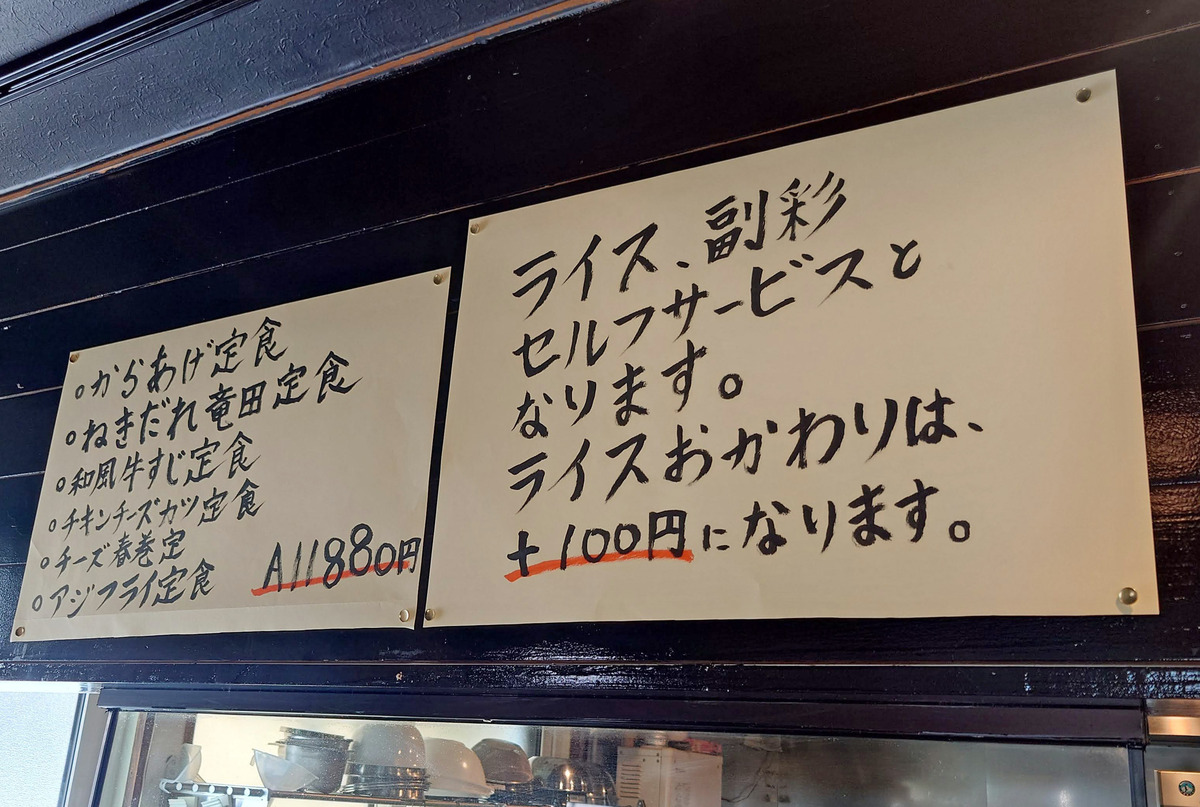 。からあげ定食
。ねぎだれ竜田定食
。和風牛すじ定食
。チキンチーズカツ定食
。チーズ春巻定
。アジフライ定食
All 880円
ライス、副彩
セルフサービスと
なります。
ライスおかわりは、
+100円になります。